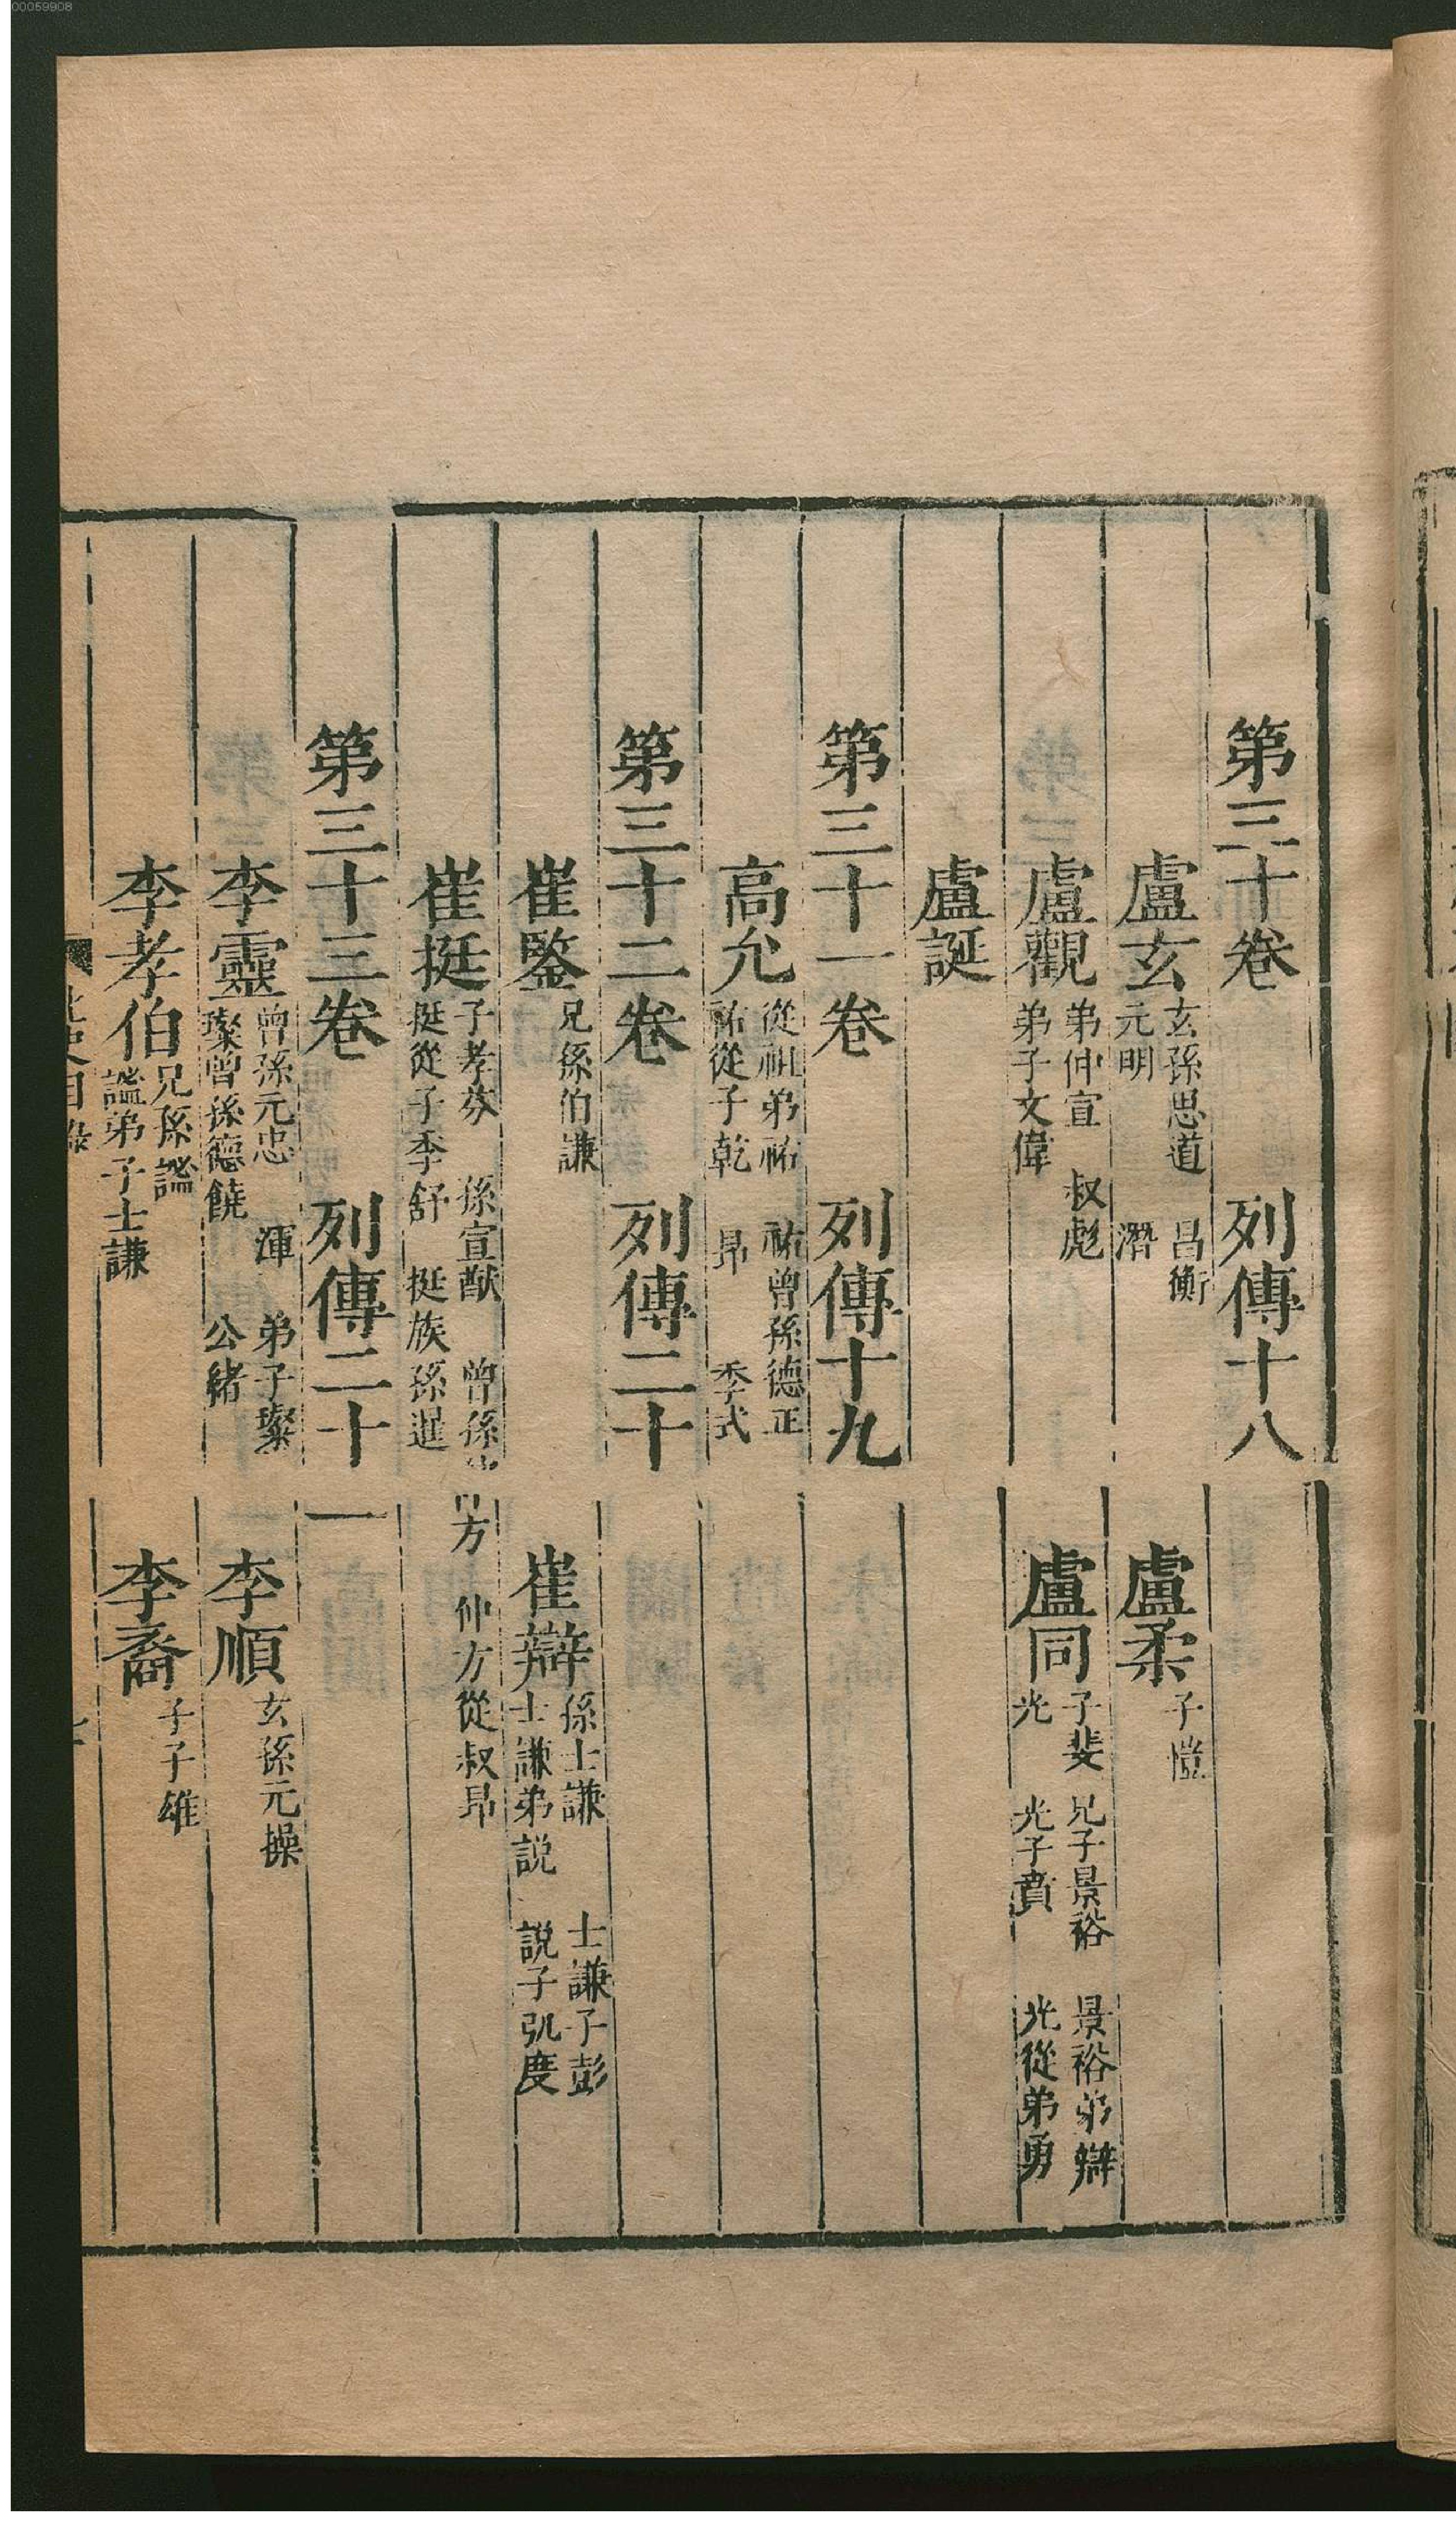 00059908
第三十卷 列傳十八
盧玄 玄孫思道 昌衡 元明 潛 盧柔 子愷
盧觀 弟仲宣 叔彪 弟子文偉 盧同 子斐 兄子景裕 景裕弟辯 光 光子賁 光從弟勇
盧誕
第三十一卷 列傳十九
高允 從祖弟祐 祐曾孫德正 祐從子乾 昂 季式
第三十二卷 列傳二十
崔鑒 兄孫伯謙 崔辯 孫士謙 士謙子彭 士謙弟説 説子弘度
崔挺 子孝芬 孫宣猷 曾孫仲方 仲方從叔昂 挺從子季舒 挺族孫暹
第三十三卷 列傳二十一
李靈 曾孫元忠 渾 弟子璨 璨曾孫德饒 公緒 李順 玄孫元操
李孝伯 兄孫謐 謐弟子士謙 李裔 子子雄
北史目錄 七